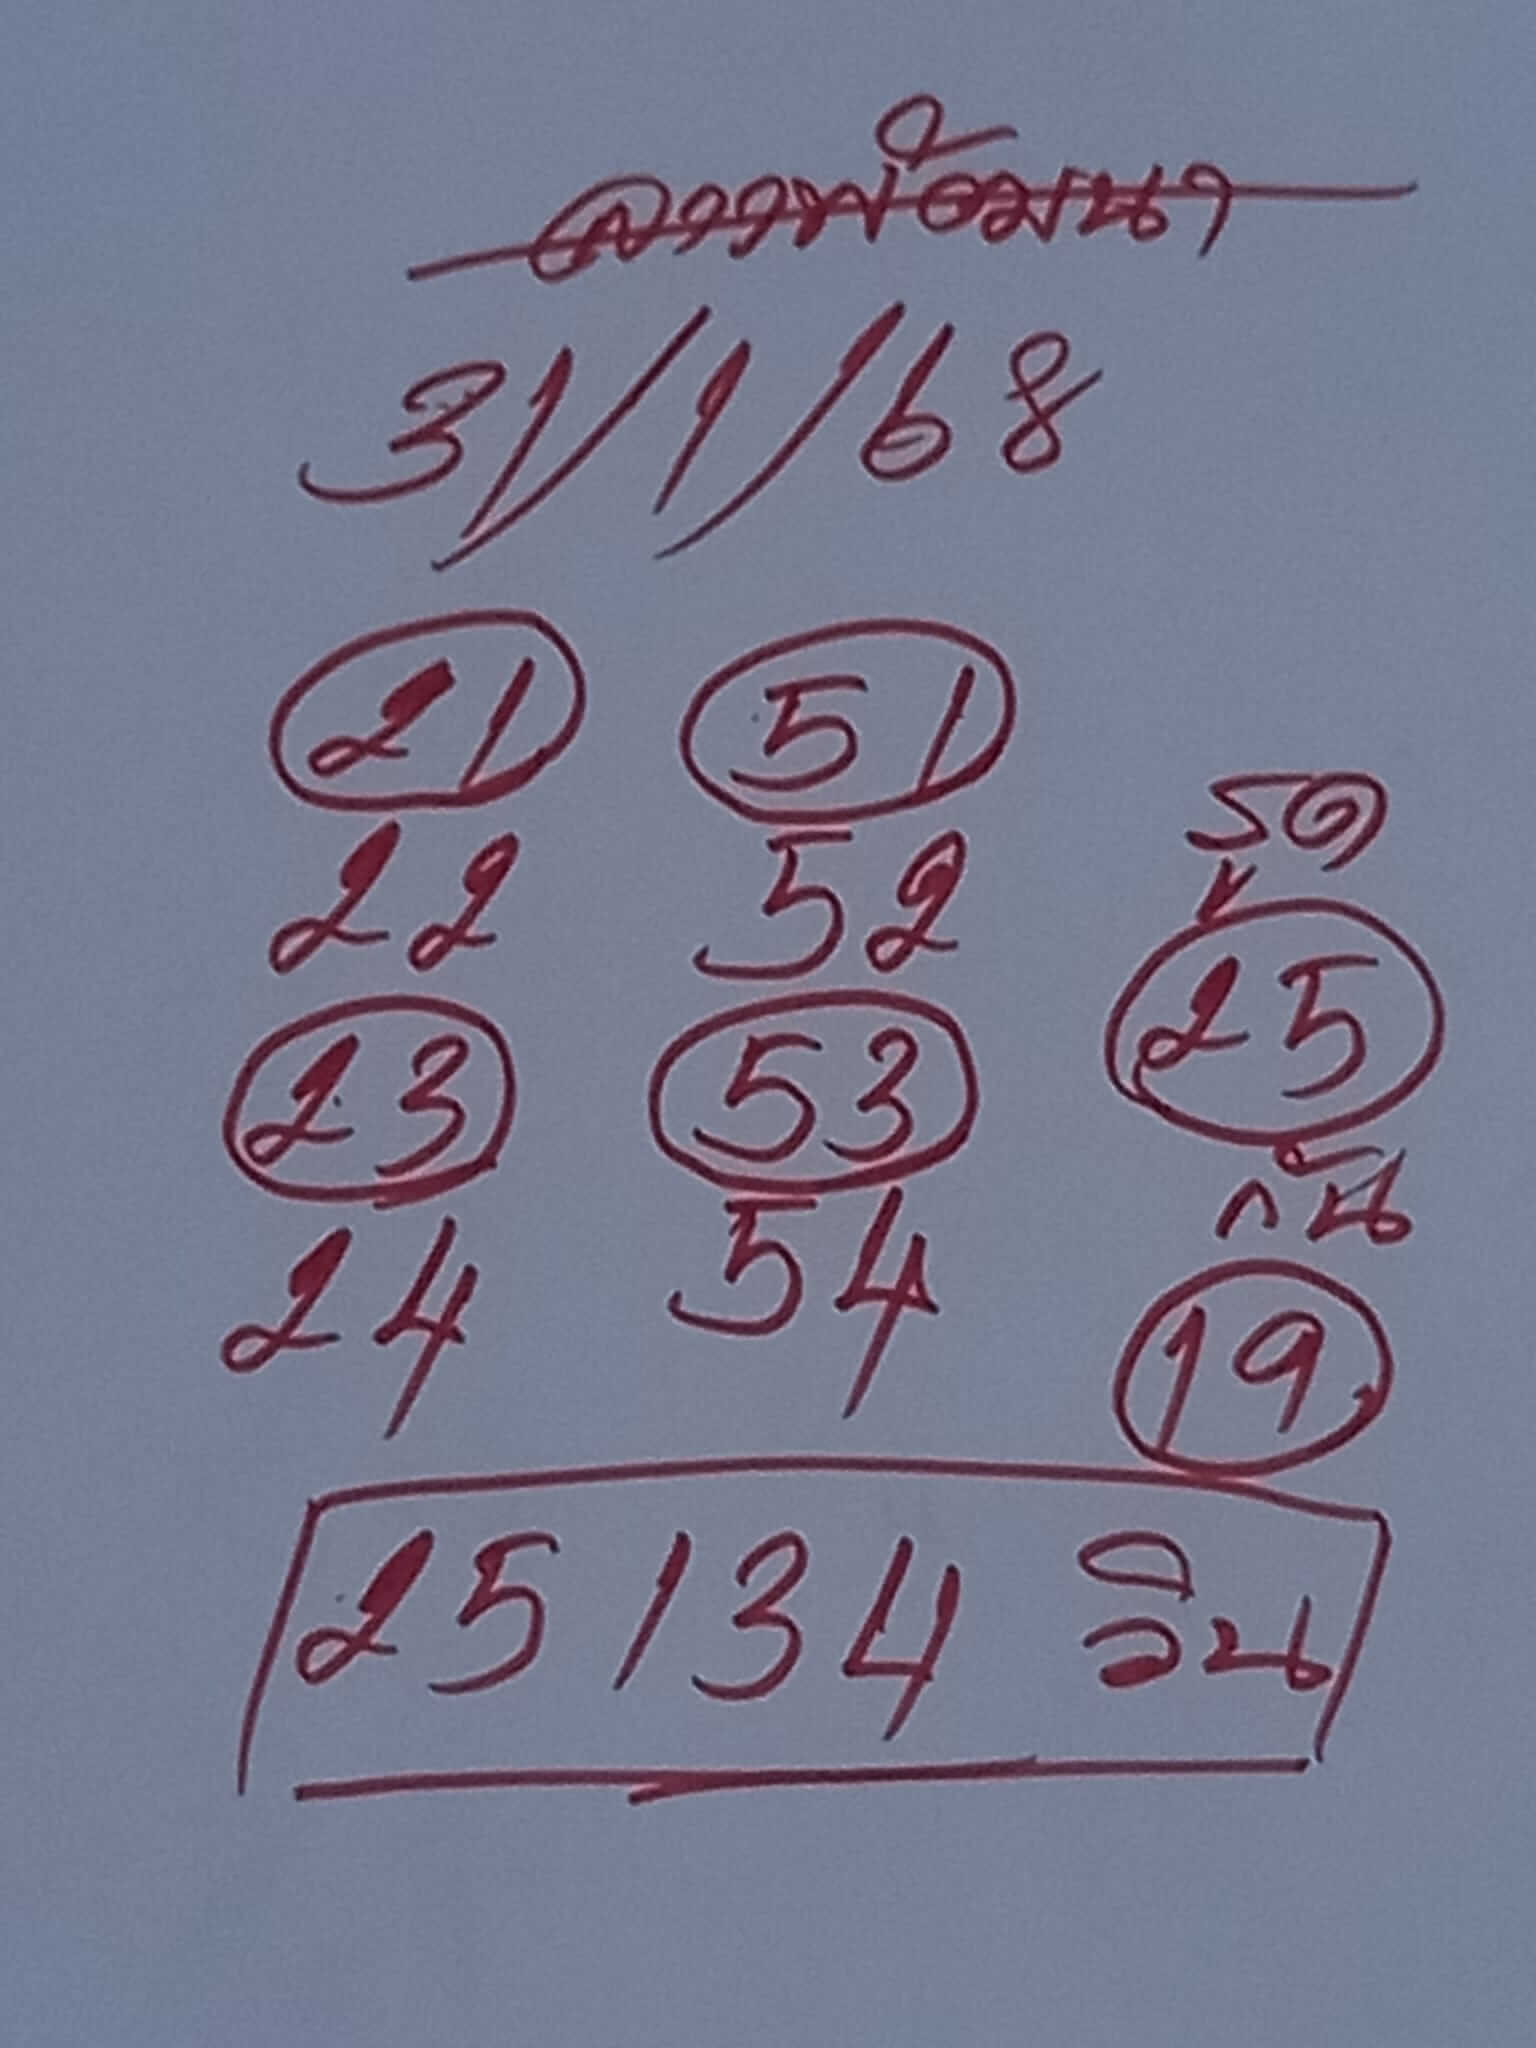 ลาวพัฒนา
31/1/68
21 51
22 52
รูด
25
23 53
กัน
24 54
19
25134 วิน